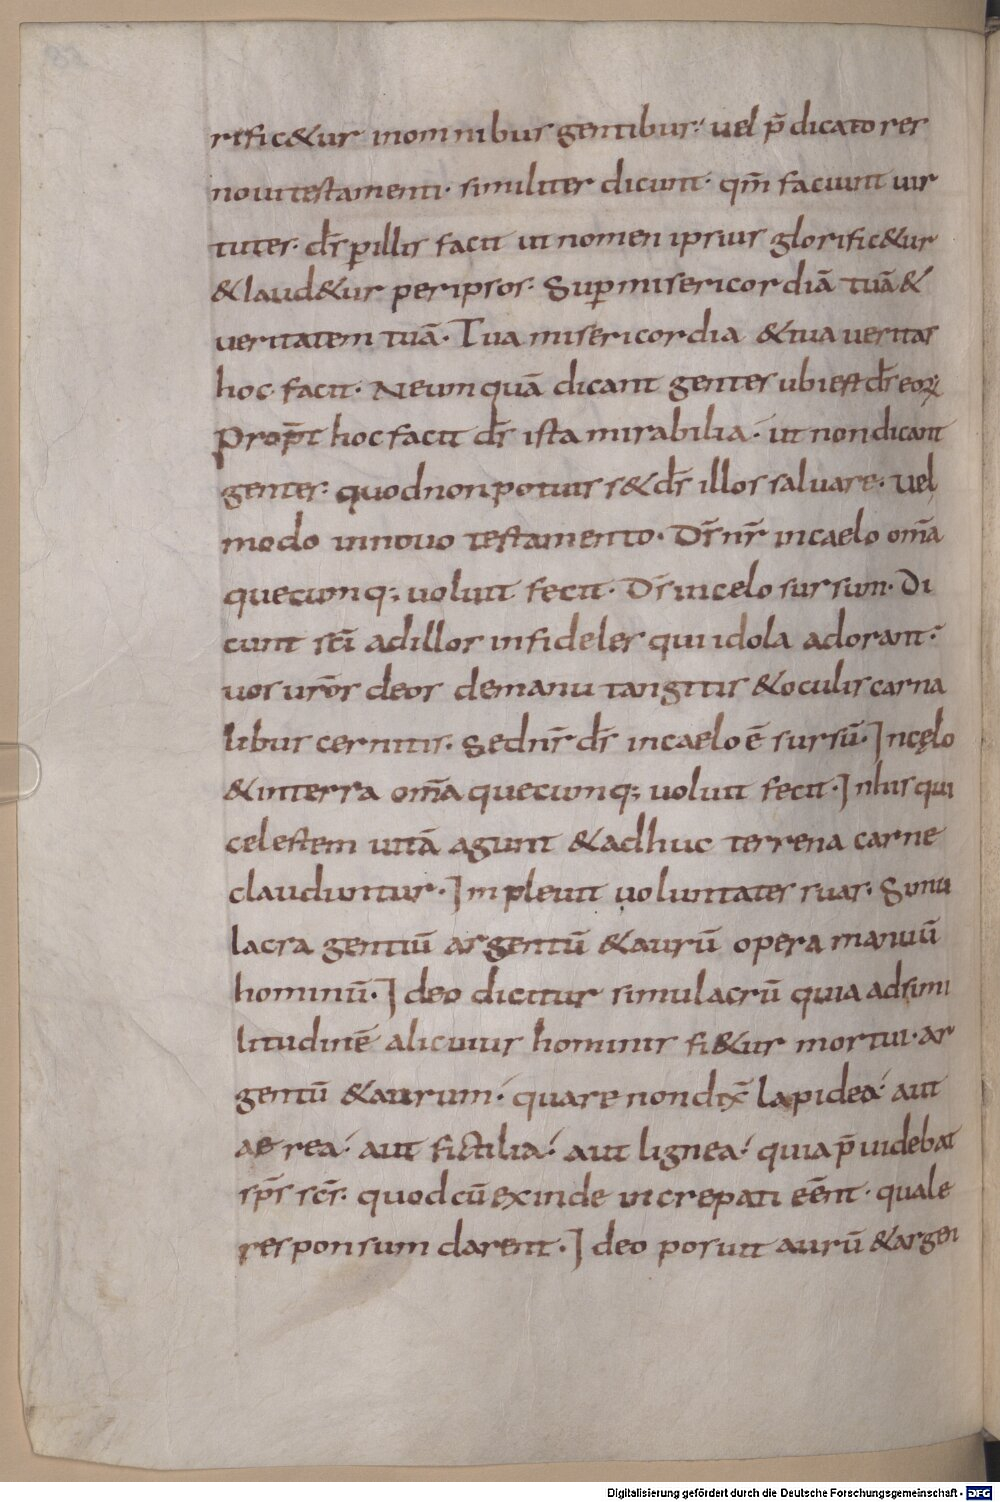 rific&ur inomnibus gentibus; uel p̄dicatores
nouitestamenti· similiter dicunt· qm̄ faciunt uir
tutes· d̄s pillis facit ut nomen ipsius glorific&ur
&laud&ur peripsos; Sup misericordiā tuā &
ueritatem tuā· Tua misericordia &tua ueritas
hoc facit· Neumquā dicant gentes ubiest d̄s eoꝝ
Prop̄t hoc facit d̄s ista mirabilia· ut non dicant
gentes· quodnonpotuiss& d̄s illos saluare· Uel
modo innouo testamento· D̄s nr̄ incaelo om̄a
quecumq; uoluit fecit· D̄s incelo sursum· Di
cunt sc̄i adillos infideles qui idola adorant·
uos ur̄os deos demanu tangitis &oculis carna
libus cernitis· Sednr̄ d̄s incaelo ē sursū· Incęlo
&interra om̄a quecumq; uoluit fecit· Inhis qui
celestem uitā agunt &adhuc terrena carne
clauduntur· Impleuit uoluntates suas· Simu
lacra gentiū argentū &aurū opera manuū
hominū· Ideo dicitur simulacrū quia adsimi
litudinē alicuius hominis fi&ur mortui· ar
gentū &aurum· quare nondix̄ lapidea· aut
aerea· aut fictilia· aut lignea· quia p̄uidebat
sp̄s sc̄s· quodcū exinde increpati ee̅nt· quale
responsum darent· Ideo posuit aurū &argen
Digitalisierung gefördert durch die Deutsche Forschungsgemeinschaft - DFG